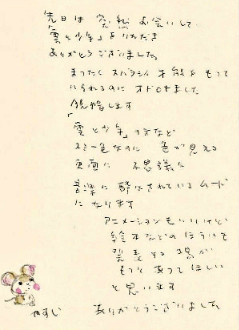 先日は 突然 お会いして
「雲と少年」をいただき
ありがとうございました
まったく すバラシイ 才能を もって
いられるのに オドロキました
「雲と少年」の方など
スミ一色なのに 色が見える
画面に 不思議な
音楽に 酔わされているムード
になります
アニメーションもいいけれど
絵本などのほうでも
発表する場が
もっとあってほしい
と思います
やすじ ありがとうございました